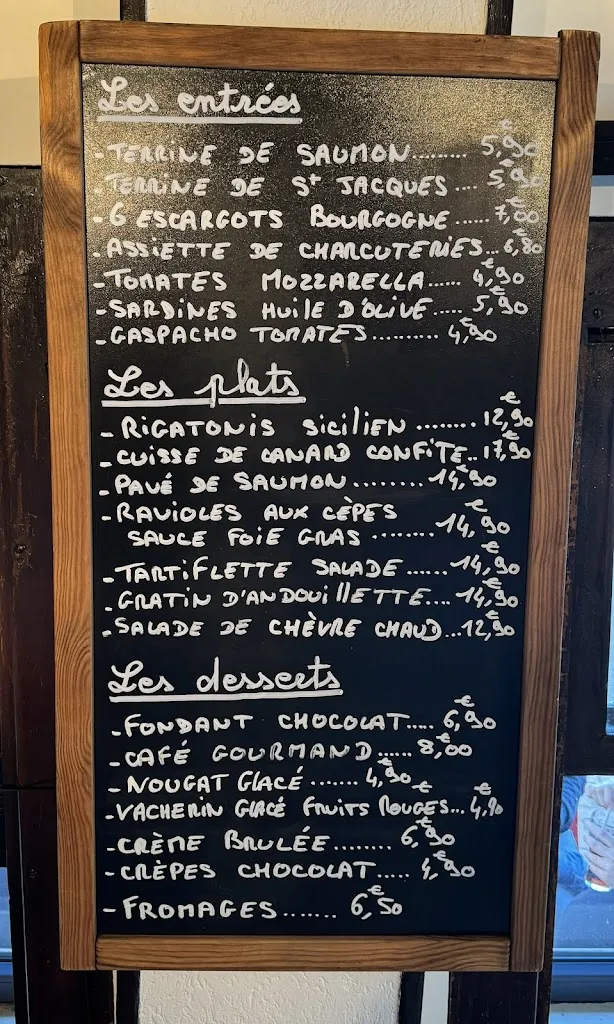 Les entrées
- TERRINE DE SAUMON......... 5,€90
- TERRINE DE St JACQUES .... 5,€90
- 6 ESCARGOTS BOURGOGNE ...... 7,€00
- ASSIETTE DE CHARCUTERIES... 6,€80
- TOMATES MOZZARELLA...... 4,€90
- SARDINES HUILE D'OLIVE ..... 5,€90
- GASPACHO TOMATES.......... 4,€90
Les plats
- RIGATONIS SICILIEN ........ 12,€90
- CUISSE DE CANARD CONFITE.. 17,€90
- PAVÉ DE SAUMON........ 14,€90
- RAVIOLES AUX CÈPES
SAUCE FOIE GRAS ........ 14,€90
- TARTIFLETTE SALADE ...... 14,€90
- GRATIN D'ANDOUILLETTE.... 14,€90
- SALADE DE CHÈVRE CHAUD... 12,€90
Les desserts
- FONDANT CHOCOLAT..... 6,€90
- CAFÉ GOURMAND ...... 8,€00
- NOUGAT GLACÉ ....... 4,€90
- VACHERIN GLACÉ FRUITS ROUGES... 4,€90
- CRÈME BRULÉE........ 6,€90
- CRÈPES CHOCOLAT ..... 4,€90
- FROMAGES...... 6,€50